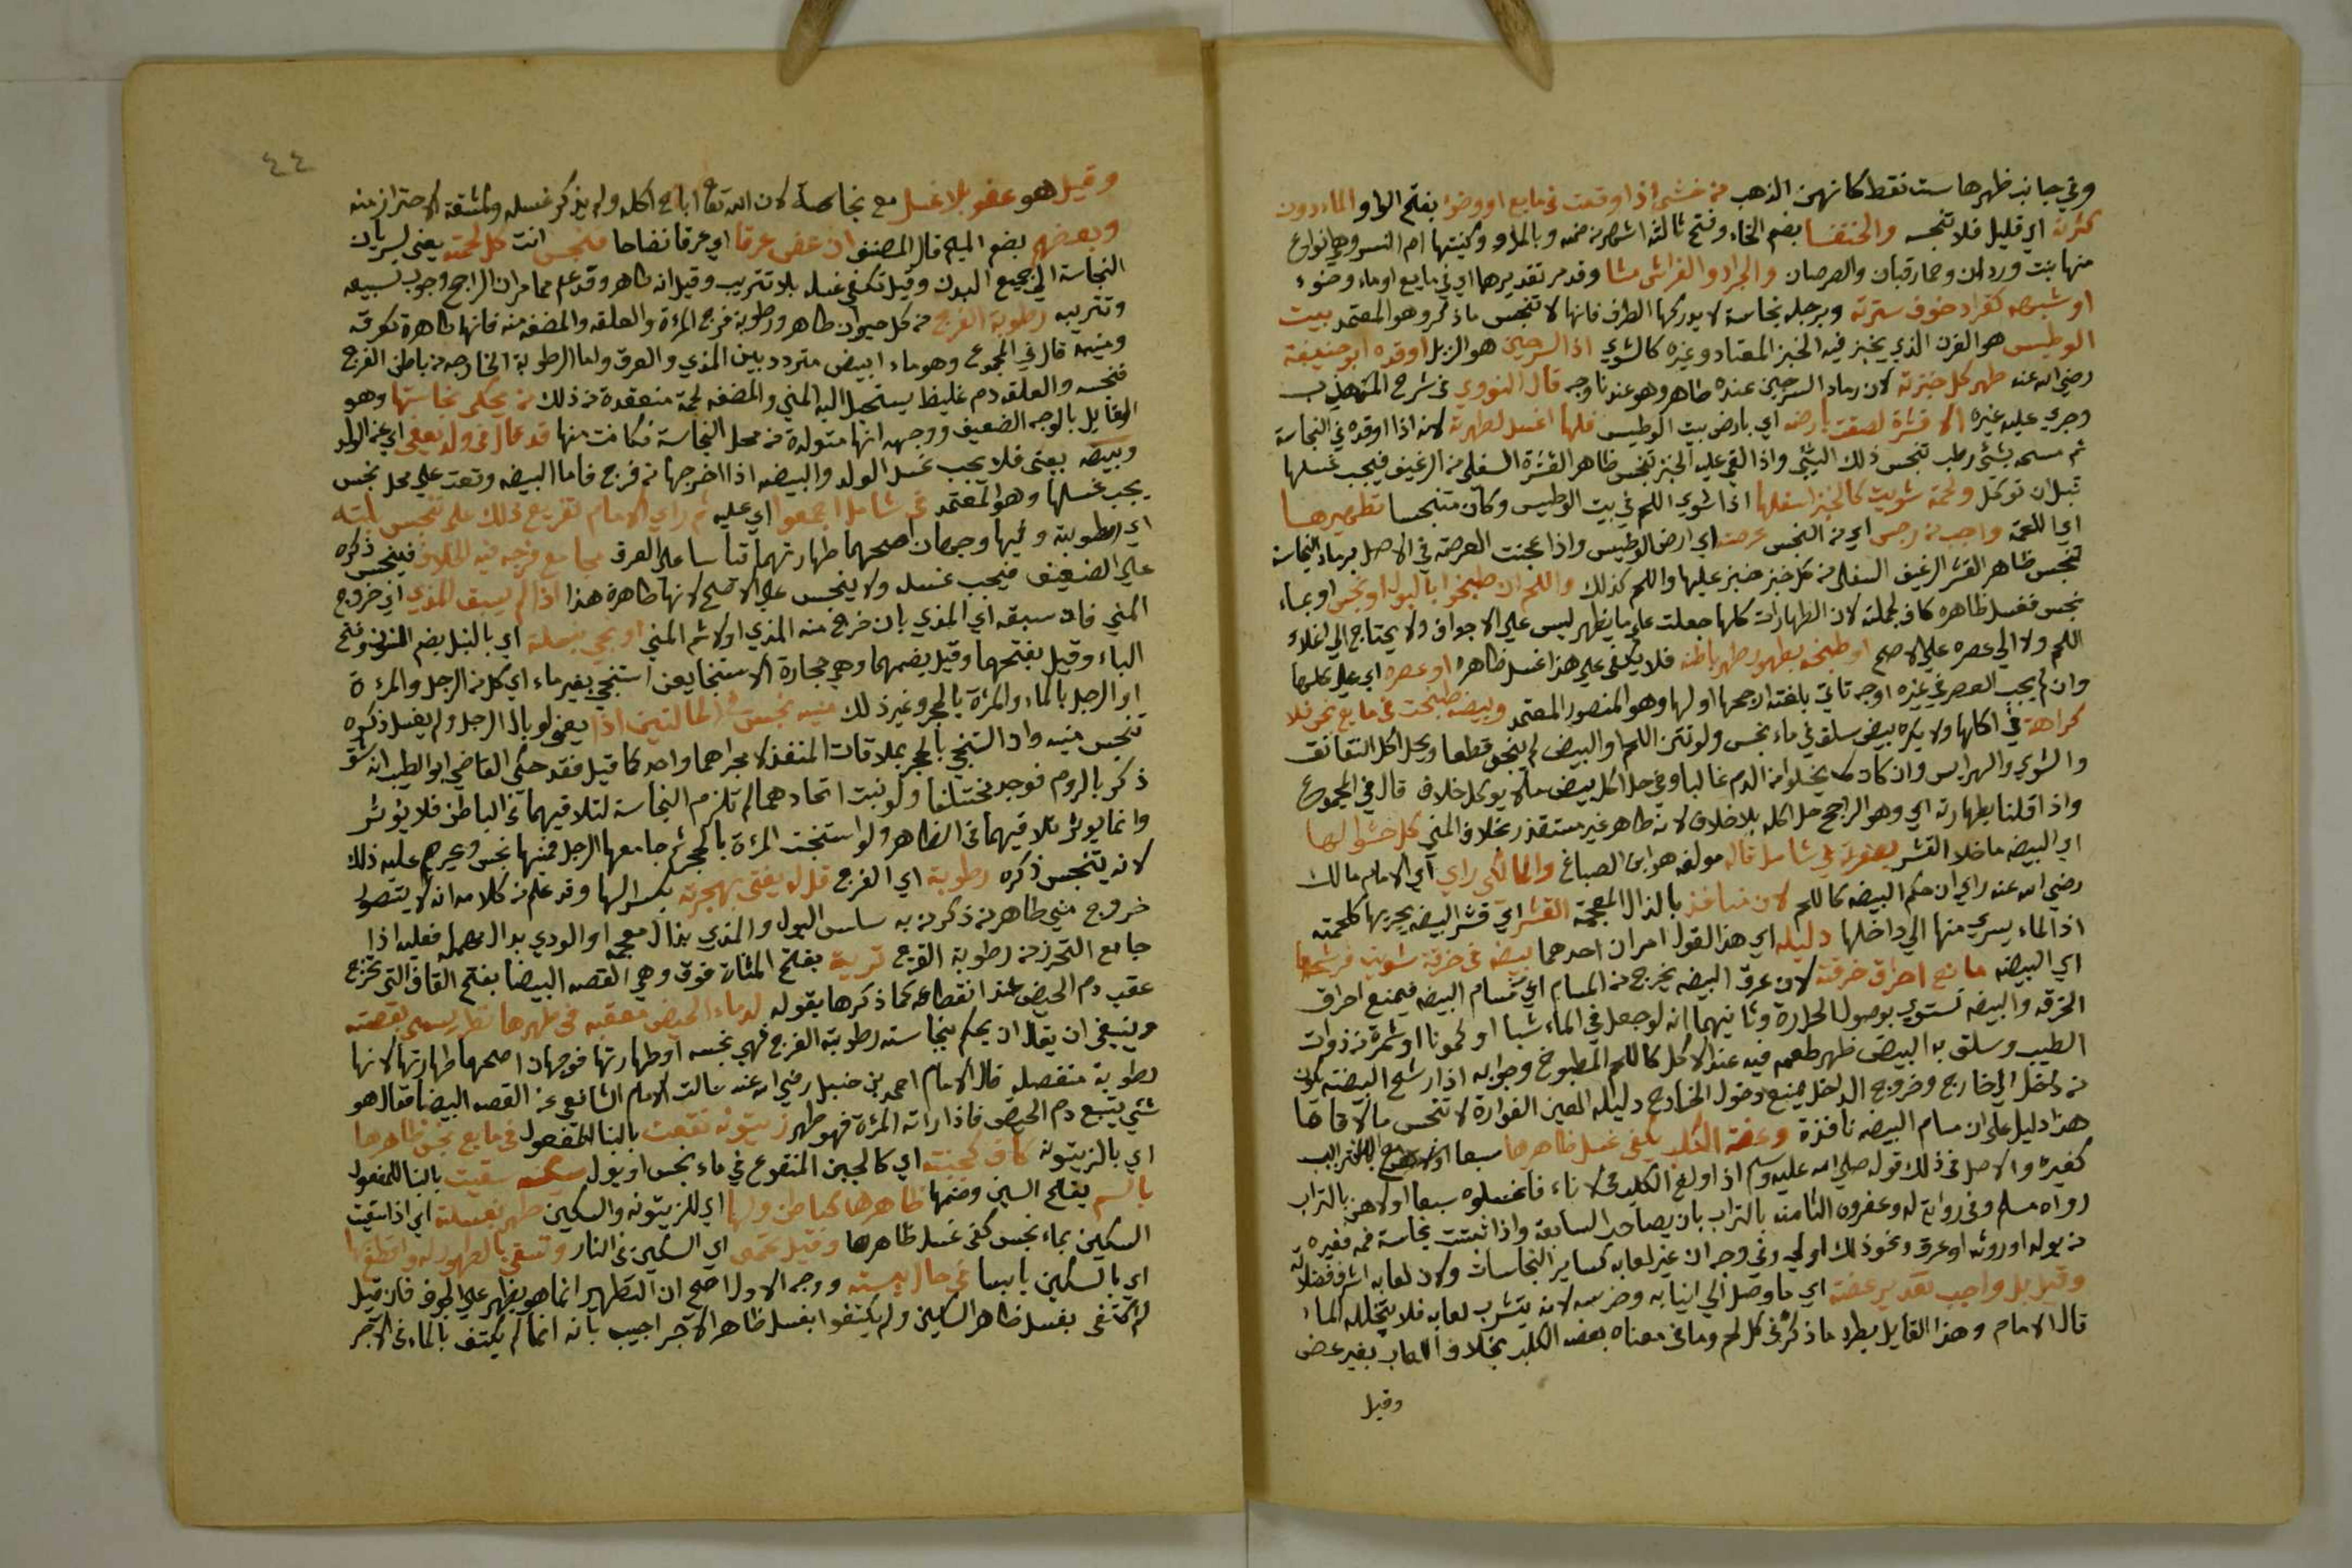 وفي جانب ظهرها ست نقط كانهن الذهب من خشي اذا وقعت في مايع او وضوء بفتح الواو الماء دون
كثرة اي قليل فلا تنجسه والخنفسا بضم الخاء وفتح ثالثه اشهر من ضمه وبالمد وكنيتها ام النسو وهي انواع
منها بنت وردان وحمار قبان والصرصان والجراد والفراش مشا وقد مر تقديرهما اي في مايع او ماء وضوء
او شبهه كقراد خوف سترته وبرجله نجاسة لا يدركها الطرف فانها لا تنجس ما ذكر وهو المعتمد بيت
الوطيس هو الفرن الذي يخبز فيه الخبز المعتاد وغيره كالشوي اذا السرجين هو الزبل اوقده ابو حنيفة
رضي الله عنه طهر كل خبزته لان رماد السرجين عنده طاهر وهو عندنا وجه قال النووي في شرح المهذب
وجري عليه غيره الا قشرة لصقت بارضه اي بارض بيت الوطيس فلها اغسل لطهرته لانه اذا اوقده في النجاسة
ثم مسحه بشئ رطب تنجس ذلك الشئ واذا القي عليه الخبز تنجس ظاهر القشرة السفلى من الرغيف فيجب غسلها
قبل ان توكل ولحمة شويت كالخبز اسفلها اذا شوي اللحم في بيت الوطيس وكان متنجسا تطهيرها
اي اللحمة واجب من رجس اي من النجس عرصته اي ارض الوطيس واذا عجنت العرصة في الاصل برماد النجاسة
تنجس ظاهر القشر الرغيف السفلى من كل خبز خبز عليها واللحم كذلك واللحم ان طبخوا بالبول او نجس او بماء
نجس فغسل ظاهره كاف لجملته لان الطهارات كلها جعلت على ما يظهر ليس على الاجواف ولا يحتاج الى اغلاء
اللحم ولا الى عصره على الاصح او طبخه بطهور طهر باطنه فلا يكفي على هذا غسل ظاهره او عصره اي على
وان لم يجب العصر في غيره اوجه تاتي بلغته ارجحها اولها وهو المنصور المعتمد وبيضة طبخت في مايع نجس فلا
كراهة في اكلها ولا يكره بيض سلق في ماء نجس ولو نتن اللحم او البيض لم ينجس قطعا ويحل اكل النقانق
والشوي والهرايس وان كان لا يخلوا من الدم غالبا وفي حل اكل بيض ما لا يوكل خلاف قال في المجموع
واذا قلنا بطهارته اي وهو الراجح حل اكله بلا خلاف لانه طاهر غير مستقذر بخلاف المني كل خشوا لها
اي البيضة ما خلا القشر في شامل قاله مولفه هو ابن الصباغ والمالكي راي اي الامام مالك
رضي الله عنه راي ان حكم البيضة كاللحم لان منافذ بالذال المعجمة القشر اي قشر البيضة يجريها كلحمته
اذ الماء يسري منها الى داخلها دليله اي هذا القول امران احدهما بيضة في خرقة شويت فرشحها
اي البيضة مانع احراق خرقته لان عرق البيضة يخرج من المسام اي مسام البيضة فيمنع احراق
الخرقة والبيضة تستوي بوصول الحرارة وثانيهما انه لو جعل في الماء شبا او كمونا او شمرة من ذوات
الطيب وسلق به البيض ظهر طعمه فيه عند الاكل كاللحم المطبوخ وجوابه اذا رشح البيضة
من داخل الى خارج وخروج الداخل يمنع دخول الخارج دليله العين الفوارة لا تنجس ما لاقاها
هذا دليل على ان مسام البيضة نافذة وعضة الكلب يكفي غسل ظاهرها سبعا
كغيره والاصل في ذلك قوله صلى الله عليه وسلم اذا ولغ الكلب في الاناء فاغسلوه سبعا اولاهن بالتراب
رواه مسلم وفي رواية له وعفروه الثامنة بالتراب بان يصاحب السابعة واذا ثبتت نجاسة فمه فغيره
من بوله او روثه او عرق ونحو ذلك اولى وفي وجه ان غير لعابه كساير النجاسات ولان لعابه اشرف فضلاته
وقيل بل واجب تقدير عضة اي ما وصل الى انيابه وضرسه لانه يتشرب لعابه فلا يتخلله الماء
قال الامام وهذا القايل يطرد ما ذكره في كل لحم وما في معناه بعضه الكلب بخلاف اللعاب بغير عض
وقيل
٤٤
وقيل هو عفو بلا غسل مع نجاسة لان الله تعالى اباح اكله ولم يذكر غسله ولمشقة الاحتراز منه
وبعضهم بضم الميم قال المصنف ان عض عرقا اي عرقا نضاحا فنجس انت كل لحمته يعني لسريان
النجاسة الى جميع البدن وقيل تكفي غسله بلا تتريب وقيل انه طاهر وقد علم مما مر ان الراجح وجوب تسبيعه
وتتريبه رطوبة الفرج من كل حيوان طاهر ورطوبة فرج المرءة والعلقه والمضغه منه فانها طاهرة كعرقه
ومنيه قال في المجموع وهو ماء ابيض متردد بين المذي والعرق واما الرطوبة الخارجه من باطن الفرج
فنجسه والعلقه دم غليظ يستحيل اليه المني والمضغه لحمة منعقدة من ذلك من يحكى نجاستها وهو
القايل بالوجه الضعيف ووجهه انها متولدة من محل النجاسة فكانت منها قد قال في ولد يعفى اي عن الولد
وبيضه يعني فلا يجب غسل الولد والبيضه اذا اخرجها من فرج فاما البيضه وقعت على محل نجس
يجب غسلها وهو المعتمد في شامل اجمعوا اي عليه ثم راي الامام تفريع ذلك على تنجيس بلته
اي رطوبته وفيها وجهان اصحهما طهارتهما قياسا على العرق مجامع فرجه فيه الخلاف فينجس ذكره
على الضعيف فيجب غسله ولا ينجس على الاصح لانها طاهرة هذا اذا لم يسبق المذي اي خروج
المني فان سبقه اي المذي بان خرج منه المذي اولا ثم المني او نجي بنبلة اي بالنبل بضم النون وفتح
الباء وقيل بفتحهما وقيل بضمهما وهي حجارة الاستنجا يعني استنجي بغير ماء اي كل من الرجل والمرءة
او الرجل بالماء والمرءة بالحجر وغير ذلك منيه نجس في الحالتين اذا يعني لو بال الرجل ولم يغسل ذكره
تنجس منيه وان استنجي بالحجر بملاقات المنفذ لا مجراهما واحد كما قيل فقد حكى القاضي ابو الطيب انه شق
ذكر بالروم فوجد مختلفا ولو ثبت اتحادهما لم تلزم النجاسة لتلاقيهما في الباطن فلا يؤثر
وانما يوثر تلاقيهما في الظاهر ولو استنجت المرءة بالحجر ثم جامعها الرجل فمنيها نجس ويحرم عليه ذلك
لانه يتنجس ذكره رطوبة اي الفرج قل له يفتى بهجرته بكسر الهاء وقد علم من كلامه انه لا يتصور
خروج مني طاهر من ذكر من به سلس البول والمذي بذال معجمة او الودي بدال مهملة فعليه اذا
جامع التحرز من رطوبة الفرج تربية بفتح المثناة فوق وهي القصه البيضا بفتح القاف التي تخرج
عقب دم الحيض عند انقطاعه كما ذكرها بقوله لدماء الحيض معقبه في طهرها نظر يسمى بقصته
وينبغي ان يقال ان يحكم بنجاسته رطوبة الفرج فهي نجسه او طهارتها فوجهان اصحهما طهارتها لانها
رطوبة منفصله قال الامام احمد بن حنبل رضي الله عنه سالت الامام الشافعي عن القصه البيضا فقال هو
شئ يتبع دم الحيض فاذا راته المرءة فهو طهر زيتونه نقعت بالبنا للمفعول في مايع نجس ظاهرها
اي بالزيتونه كاف كجبنته اي كالجبن المنقوع في ماء نجس او بول سقيت بالبنا للمفعول
بالسم بفتح السين وضمها ظاهرها كباطن ولها اي للزيتونه والسكين طهر بغسلته اي اذا سقيت
السكين بماء نجس كفى غسل ظاهرها وقيل تحمى اي السكين في النار وتسقى بالطهور له واقطع بها
اي بالسكين يابسا في حال يبسته ووجه الاول اصح ان التطهير انما هو يظهر على الجوف فان قيل
لم اكتفى بغسل ظاهر السكين ولم يكتفوا بغسل ظاهر الاجر اجيب بانه انما لم يكتف بالماء في الآجر